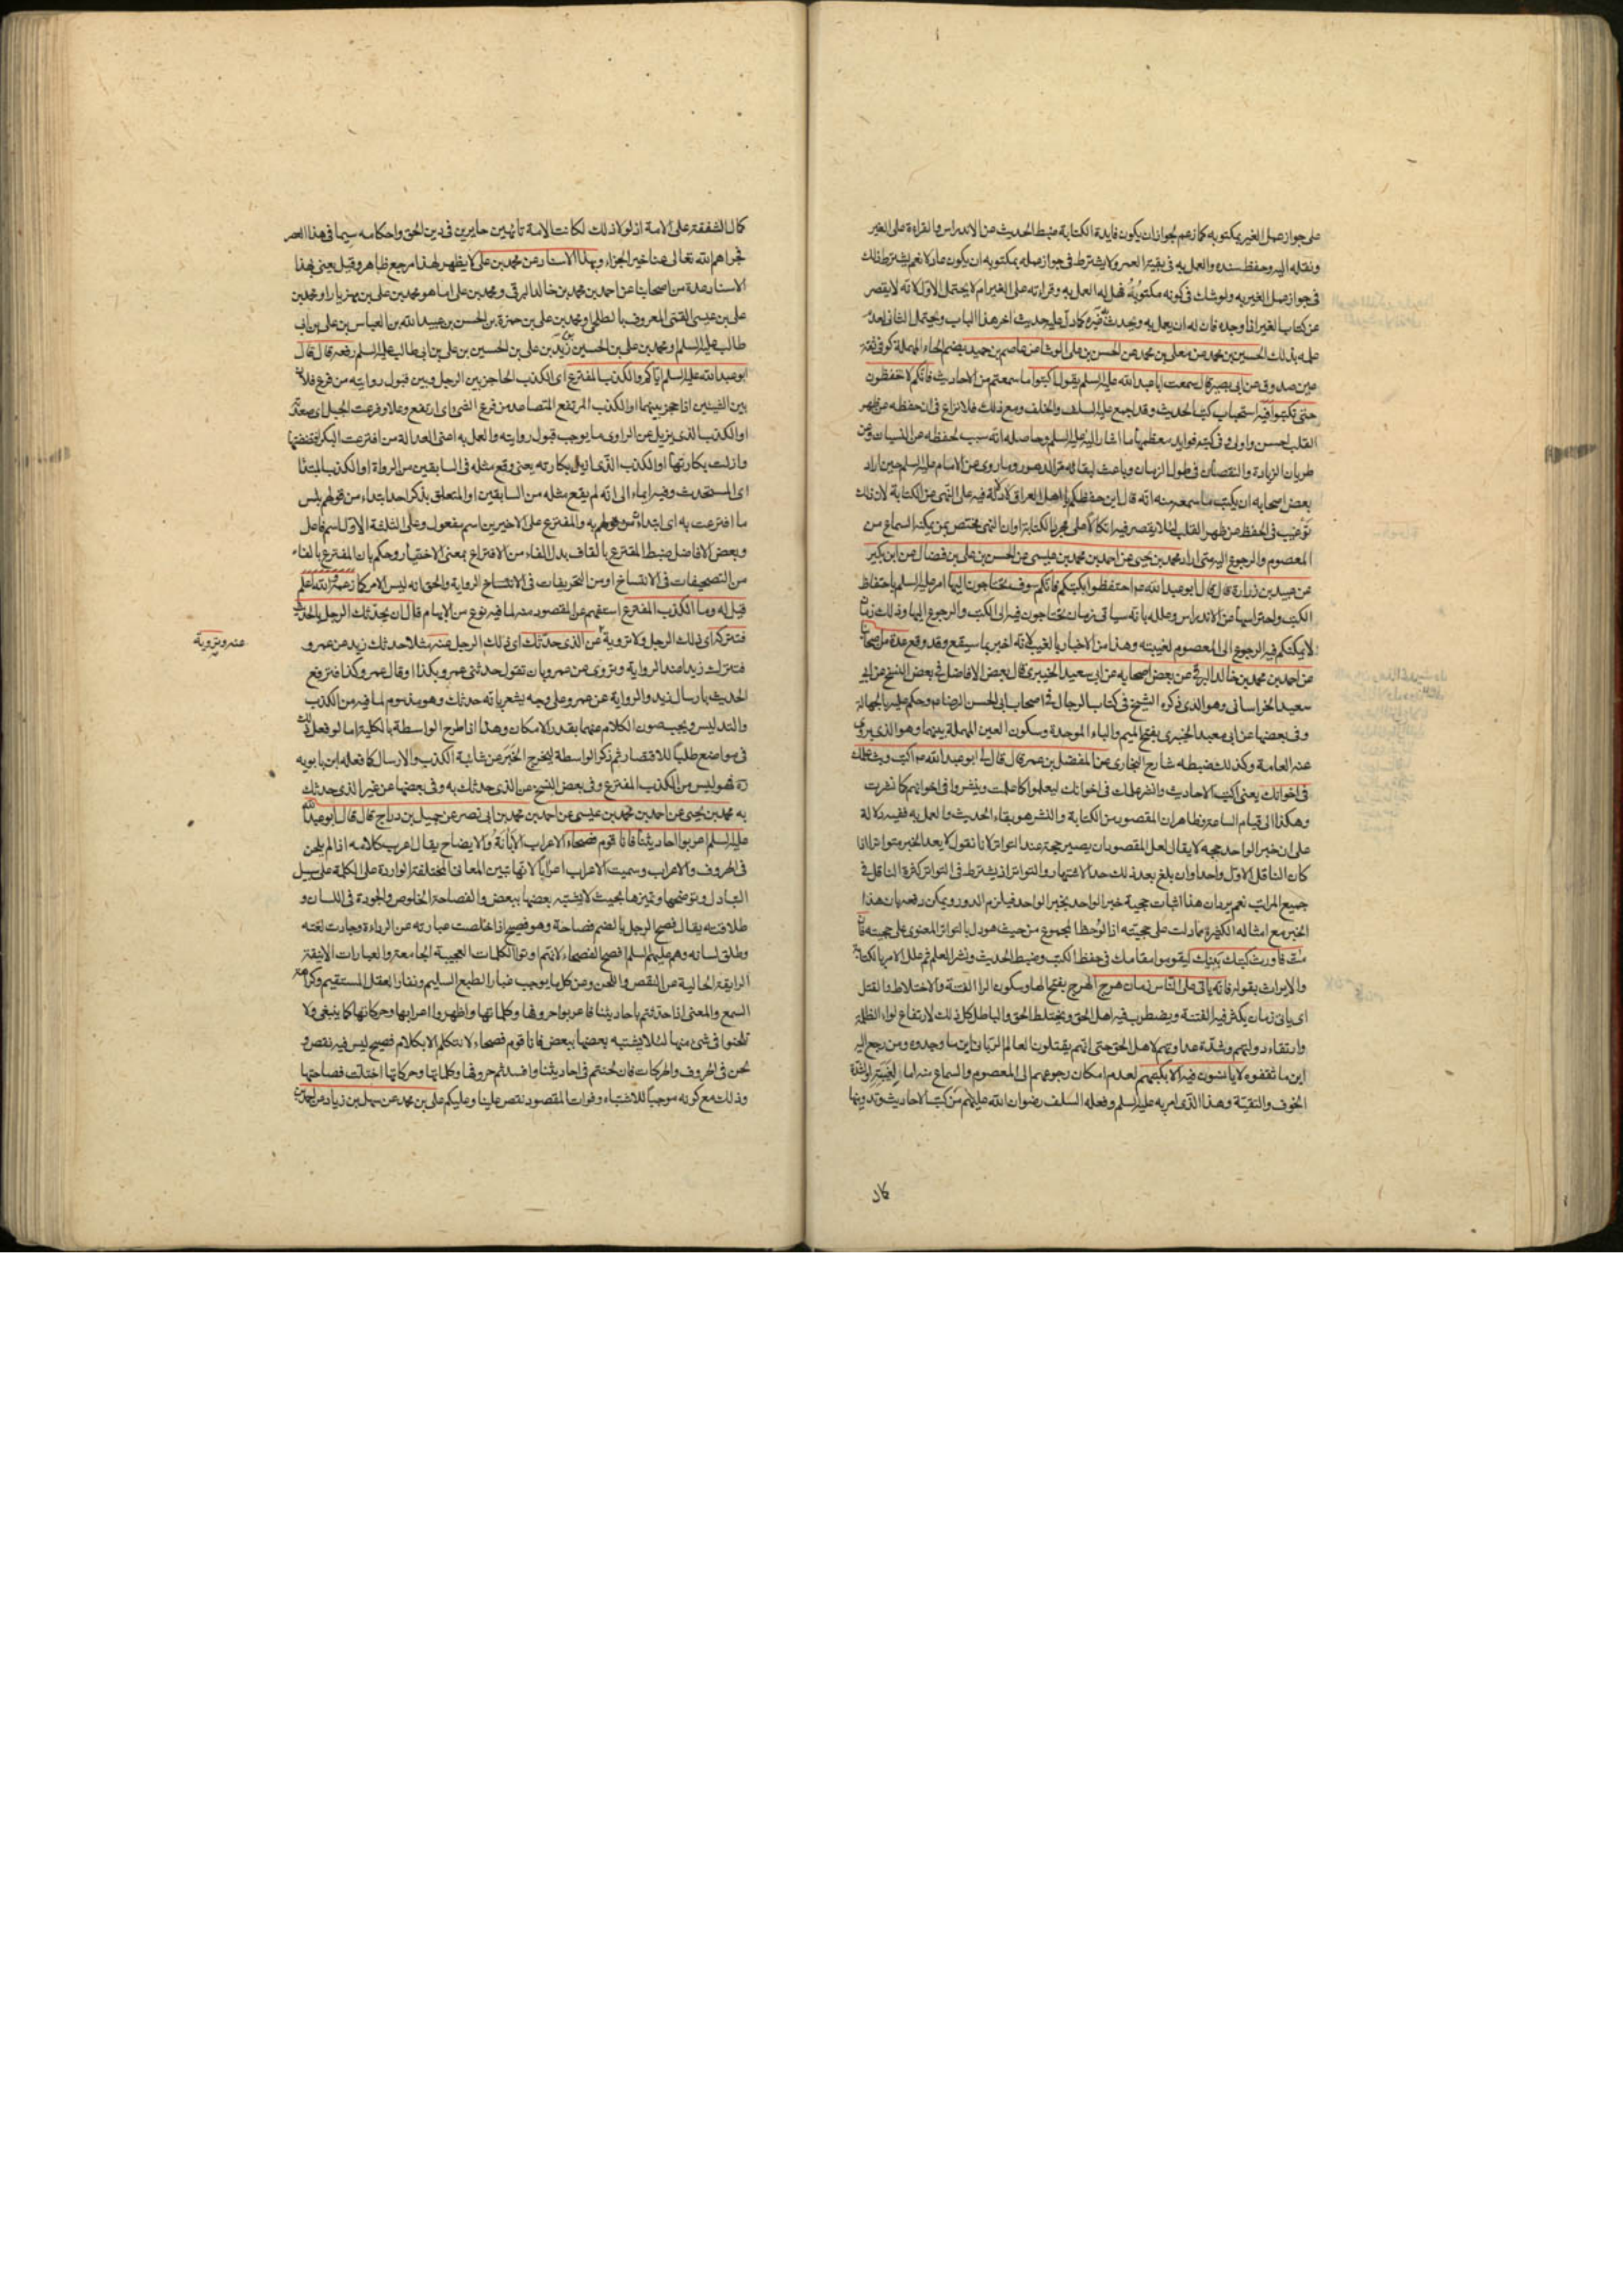 على جواز عمل الغير بمكتوبه كما زعم لجواز ان يكون فايدة الكتابة ضبط الحديث عن الاندراس والقراءة على الغير
ونقله اليه وحفظ سنده والعمل به في بقية العمر ولا يشترط في جواز عمله بمكتوبه ان يكون عادلا نعم يشترط ذلك
في جواز عمل الغير به ولو شك في كونه مكتوبه فهل له العمل به وقراءته على الغير ام لا يحتمل الاول لانه لا يقصر
عن كتاب الغير اذا وجده فان له ان يعمل به ويحدث غيره كما دل عليه حديث اخر هذا الباب ويحتمل الثاني لعدم
علمه بذلك الحسين بن محمد عن معلى بن محمد عن الحسن بن علي الوشا عن عاصم بن حميد بضم الحاء المهملة كوفي ثقة
عين صدوق عن ابي بصير قال سمعت ابا عبد الله عليه السلم يقول اكتبوا ما سمعتم من الاحاديث فانكم لا تحفظون
حتى تكتبوا فيه استحباب كتب الحديث وقد اجمع عليه السلف والخلف ومع ذلك فلا نزاع في ان حفظه عن ظهر
القلب احسن واولى وفي كتبه فوايد معظمها ما اشار اليه عليه السلم وحاصله انه سبب لحفظه عن النسيان وعن
طريان الزيادة والنقصان في طول الزمان وباعث لبقائه مر الدهور وما روى عن الامام عليه السلم حين اراد
بعض اصحابه ان يكتب ما سمعه منه انه قال اين حفظكم يا اهل العراق لا دلالة فيه على النهي عن الكتابة لان ذلك
ترغيب في الحفظ عن ظهر القلب لئلا يقصر فيه اتكالا على مجرد الكتابة او ان النهي مختص بمن يمكنه السماع من
المعصوم والرجوع اليه متى اراد محمد بن يحيى عن احمد بن محمد بن عيسى عن الحسن بن علي بن فضال عن ابن بكير
عن عبيد بن زرارة قال قال ابو عبد الله ع احتفظوا بكتبكم فانكم سوف تحتاجون اليها امر عليه السلم باحتفاظ
الكتب واحتراسها عن الاندراس وعلله بانه سياتي زمان يحتاجون فيه الى الكتب والرجوع اليها وذلك زمان
لا يمكنكم فيه الرجوع الى المعصوم لغيبته وهذا من الاخبار بالغيب لانه اخبر بما سيقع وقد وقع عدة من اصحابنا
عن احمد بن محمد بن خالد البرقي عن بعض اصحابه عن ابي سعيد الخيبري قال بعض الافاضل في بعض النسخ عن ابي
سعيد الخراساني وهو الذي ذكره الشيخ في كتاب الرجال في اصحاب ابي الحسن الرضا ع وحكم عليه بالجهالة
وفي بعضها عن ابي معبد الخيبري بفتح الميم والباء الموحدة وسكون العين المهملة بينهما وهو الذي يروى
عنه العامة وكذلك ضبطه شارح البخاري عن المفضل بن عمر قال قال لي ابو عبد الله ع اكتب وبث علمك
في اخوانك يعني اكتب الاحاديث وانشر علمك في اخوانك ليعلموا كما علمت وينشروا في اخوانهم كما نشرت
وهكذا الى قيام الساعة وظاهر ان المقصود من الكتابة والنشر هو بقاء الحديث والعمل به ففيه دلالة
على ان خبر الواحد حجة لا يقال لعل المقصود ان يصير حجة عند التواتر لانا نقول لا يعد الخبر متواترا اذا
كان الناقل الاول واحدا وان بلغ بعد ذلك حد الاشتهار والتواتر اذ يشترط في التواتر كثرة الناقل في
جميع المراتب نعم يرد ان هذا اثبات حجية خبر الواحد بخبر الواحد فيلزم الدور ويمكن رفعه بان هذا
الخبر مع امثاله الكثيرة مما دلت على حجيته اذا لوحظ المجموع من حيث هو دل بالتواتر المعنوي على حجيته فان
مت فاورث كتبك بنيك ليقوموا مقامك في حفظ الكتب وضبط الحديث ونشر العلم ثم علل الامر بالكتابة
والايراث بقوله فانه ياتي على الناس زمان هرج الهرج بفتح الها وسكون الرا الفتنة والاختلاط والقتل
اي ياتي زمان يكثر فيه الفتنة ويضطرب فيه اهل الحق ويختلط الحق والباطل كل ذلك لارتفاع لواء الظلمة
وارتقاء دولتهم وشدة عداوتهم لاهل الحق حتى انهم يقتلون العالم الرباني اين ما وجدوه ومن رجع اليه
اين ما ثقفوه لا يانسون فيه الا بكتبهم لعدم امكان رجوعهم الى المعصوم والسماع منه اما لغيبته او لشدة
الخوف والتقية وهذا الذي امر به عليه السلم وفعله السلف رضوان الله عليهم من كتب الاحاديث وتدوينها
كمال
كمال الشفقة على الامة اذ لولا ذلك لكانت الامة تايهين حايرين في دين الحق واحكامه سيما في هذا العصر
فجزاهم الله تعالى عنا خير الجزاء وبهذا الاسناد عن محمد بن علي لا يظهر لهذا مرجع ظاهر وقيل يعني بهذا
الاسناد عدة من اصحابنا عن احمد بن محمد بن خالد البرقي ومحمد بن علي اما هو محمد بن علي بن مهزيار او محمد بن
علي بن عيسى القمي المعروف بالطلحي او محمد بن علي بن حمزة بن الحسن بن عبيد الله بن العباس بن علي بن ابي
طالب عليه السلم ومحمد بن علي بن الحسين بن زيد بن علي بن الحسين بن علي بن ابي طالب عليه السلم رفعه قال قال
ابو عبد الله عليه السلم اياكم والكذب المفترع اي الكذب الحاجز بين الرجل وبين قبول روايته من فرع فلان
بين الشيئين اذا حجز بينهما او الكذب المرتفع المتصاعد من فرع الشيء اي ارتفع وعلا وفرعت الجبل اي صعدته
او الكذب الذي يزيل عن الراوي ما يوجب قبول روايته والعمل به اعني العدالة من افترعت البكر افتضضتها
وازلت بكارتها او الكذب الذي ازيل بكارته يعني وقع مثله في السابقين من الرواة او الكذب المبتدأ
اي المستحدث وفيه ايماء الى انه لم يقع مثله من السابقين او المتعلق بذكر احد ابتداء من قولهم بئس
ما افترعت به اي ابتدأت به والمفترع على الاخيرين اسم مفعول وعلى الثلثة الاول اسم فاعل
وبعض الافاضل ضبط المقترع بالقاف بدل الفاء من الاقتراع بمعنى الاختيار وحكم بان المفترع بالفاء
من التصحيفات في الانتساخ او من التحريفات في الاستنساخ الرواية والحق انه ليس الامر كما زعمه والله اعلم
قيل له وما الكذب المفترع استفهم عن المقصود منه لما فيه نوع من الابهام قال ان يحدثك الرجل بالحديث
فتتركه اي ذلك الرجل ولا ترويه عن الذي حدثك اي ذلك الرجل عنه مثلا حدثك زيد عن عمرو
عنه وترويه
فتترك زيدا عند الرواية وتروى عن عمرو بان تقول حدثني عمرو بكذا او قال عمرو كذا فترفع
الحديث بارسال زيد والرواية عن عمرو على وجه يشعر بانه حدثك وهو مذموم لما فيه من الكذب
والتدليس ويجب صون الكلام عنهما بقدر الامكان وهذا اذا طرح الواسطة بالكلية اما لو فعل ذلك
في مواضع طلبا للاقتصار ثم ذكر الواسطة ليخرج الخبر عن شائبة الكذب والارسال كما فعله ابن بابويه
ره فهو ليس من الكذب المفترع وفي بعض النسخ عن الذي حدثك به وفي بعضها عن غير الذي حدثك
به محمد بن يحيى عن احمد بن محمد بن عيسى عن احمد بن محمد بن ابي نصر عن جميل بن دراج قال قال ابو عبد الله
عليه السلم اعربوا احاديثنا فانا قوم فصحاء الاعراب الابانة والايضاح يقال اعرب كلامه اذا لم يلحن
في الحروف والاعراب وسميت الاعراب اعرابا لانها تبين المعاني المختلفة الواردة على الكلمة على سبيل
التبادل وتوضحها وتميزها بحيث لا يشتبه بعضها ببعض والفصاحة الخلوص والجودة في اللسان و
طلاقته يقال فصح الرجل بالضم فصاحة وهو فصيح اذا خلصت عبارته عن الرداءة وجادت لغته
وطلق لسانه وهم عليهم السلم افصح الفصحاء لانهم اوتوا الكلمات العجيبة الجامعة والعبارات الانيقة
الرايقة الخالية عن النقص واللحن وعن كل ما يوجب غبار الطبع السليم ونفار العقل المستقيم وكراهة
السمع والمعنى اذا حدثتم باحاديثنا فاعربوا حروفها وكلماتها واظهروا اعرابها وحركاتها كما ينبغي ولا
تلحنوا في شئ منها لئلا يشتبه بعضها ببعض فانا قوم فصحاء لا نتكلم الا بكلام فصيح ليس فيه نقص و
لحن في الحروف والحركات فان لحنتم في احاديثنا وافسدتم حروفها وكلماتها وحركاتها اختلت فصاحتها
وذلك مع كونه موجبا للاشتباه وفوات المقصود نقص علينا وعليكم علي بن محمد عن سهل بن زياد عن احمد بن